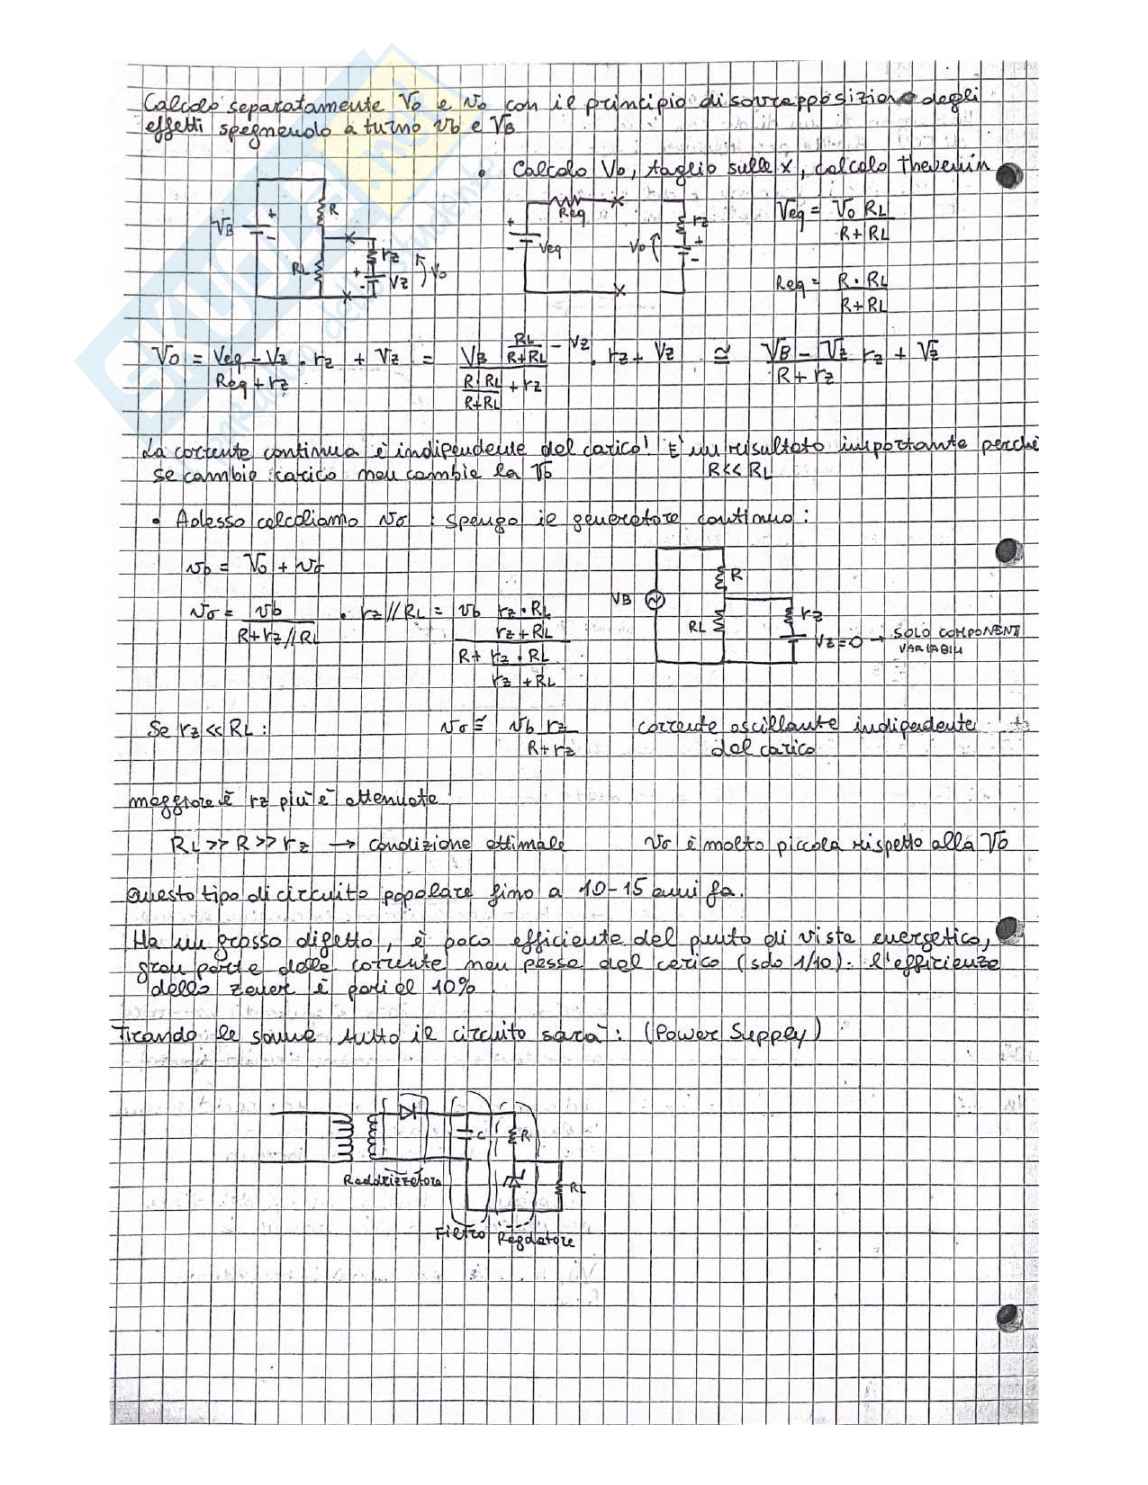 Calcolo separatamente Vo e vo con il principio di sovrapposizione degli
effetti spegnendo a turno vb e VB
• Calcolo Vo, taglio sulle x, calcolo thevenin
VB + - R RL rz + - Vz Vo
Req + - Veq Vo rz + -
Veq = Vo RL / R+RL
Req = R·RL / R+RL
Vo = Veq - Vz / Req + rz · rz + Vz = VB RL / R+RL - Vz / R·RL / R+RL + rz · rz + Vz ≅ VB - Vz / R + rz rz + Vz
La corrente continua è indipendente dal carico! È un risultato importante perché
se cambio carico non cambia la Vo R<<RL
• Adesso calcoliamo vo : spengo il generatore continuo:
vb = Vo + vo
vo = vb / R+rz//RL · rz//RL = vb rz·RL / rz+RL / R+ rz·RL / rz+RL
VB R RL rz Vz=0 → SOLO COMPONENTI
VARIABILI
Se rz<<RL: vo ≅ vb rz / R+rz corrente oscillante indipendente
del carico
maggiore è rz più è attenuata
RL >> R >> rz → condizione ottimale vo è molto piccola rispetto alla Vo
Questo tipo di circuito popolare fino a 10-15 anni fa.
Ha un grosso difetto, è poco efficiente dal punto di vista energetico,
gran parte della corrente non passa dal carico (solo 1/10). l'efficienza
dello zener è pari al 10%
Tirando le somme tutto il circuito sarà: (Power Supply)
C R RL
Raddrizzatore
Filtro Regolatore
SKUOLA.net